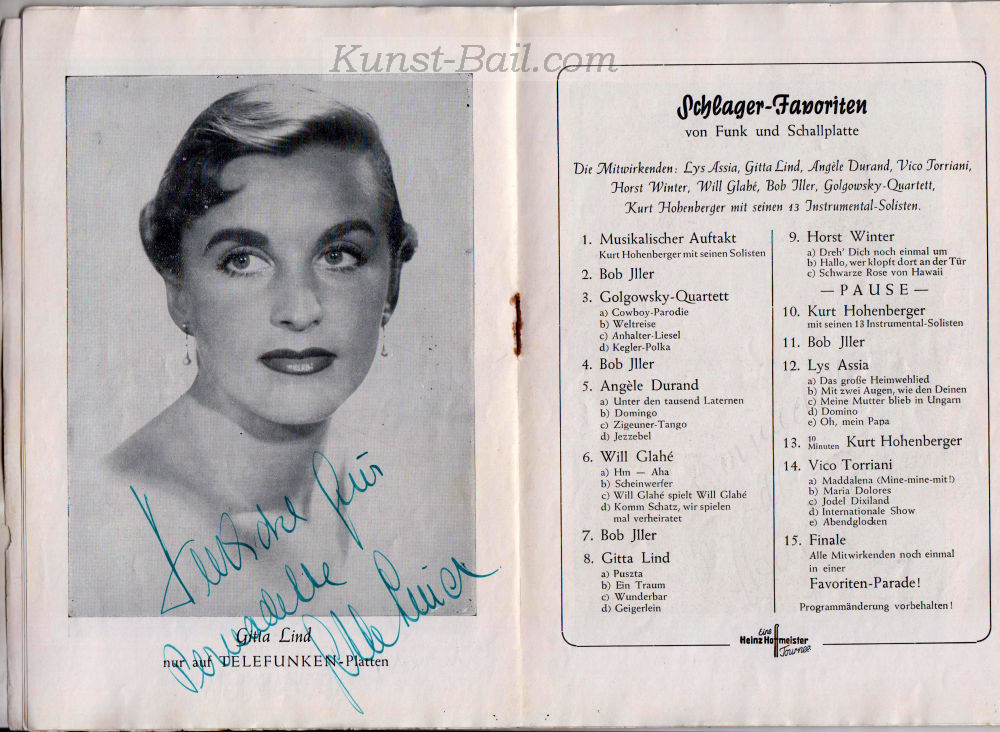 Kunst-Bail.com
Herzlichst für
Bernadette
Gitta Lind
Gitta Lind
nur auf TELEFUNKEN-Platten
Schlager-Favoriten
von Funk und Schallplatte
Die Mitwirkenden: Lys Assia, Gitta Lind, Angèle Durand, Vico Torriani,
Horst Winter, Will Glahé, Bob Jller, Golgowsky-Quartett,
Kurt Hohenberger mit seinen 13 Instrumental-Solisten.
1. Musikalischer Auftakt
Kurt Hohenberger mit seinen Solisten
2. Bob Jller
3. Golgowsky-Quartett
a) Cowboy-Parodie
b) Weltreise
c) Anhalter-Liesel
d) Kegler-Polka
4. Bob Jller
5. Angèle Durand
a) Unter den tausend Laternen
b) Domingo
c) Zigeuner-Tango
d) Jezzebel
6. Will Glahé
a) Hm — Aha
b) Scheinwerfer
c) Will Glahé spielt Will Glahé
d) Komm Schatz, wir spielen
mal verheiratet
7. Bob Jller
8. Gitta Lind
a) Puszta
b) Ein Traum
c) Wunderbar
d) Geigerlein
9. Horst Winter
a) Dreh' Dich noch einmal um
b) Hallo, wer klopft dort an der Tür
c) Schwarze Rose von Hawaii
— PAUSE —
10. Kurt Hohenberger
mit seinen 13 Instrumental-Solisten
11. Bob Jller
12. Lys Assia
a) Das große Heimwehlied
b) Mit zwei Augen, wie den Deinen
c) Meine Mutter blieb in Ungarn
d) Domino
e) Oh, mein Papa
13. 10 Minuten Kurt Hohenberger
14. Vico Torriani
a) Maddalena (Mine-mine-mit!)
b) Maria Dolores
c) Jodel Dixiland
d) Internationale Show
e) Abendglocken
15. Finale
Alle Mitwirkenden noch einmal
in einer
Favoriten-Parade!
Programmänderung vorbehalten!
Eine
Heinz Hoffmeister
Tournee